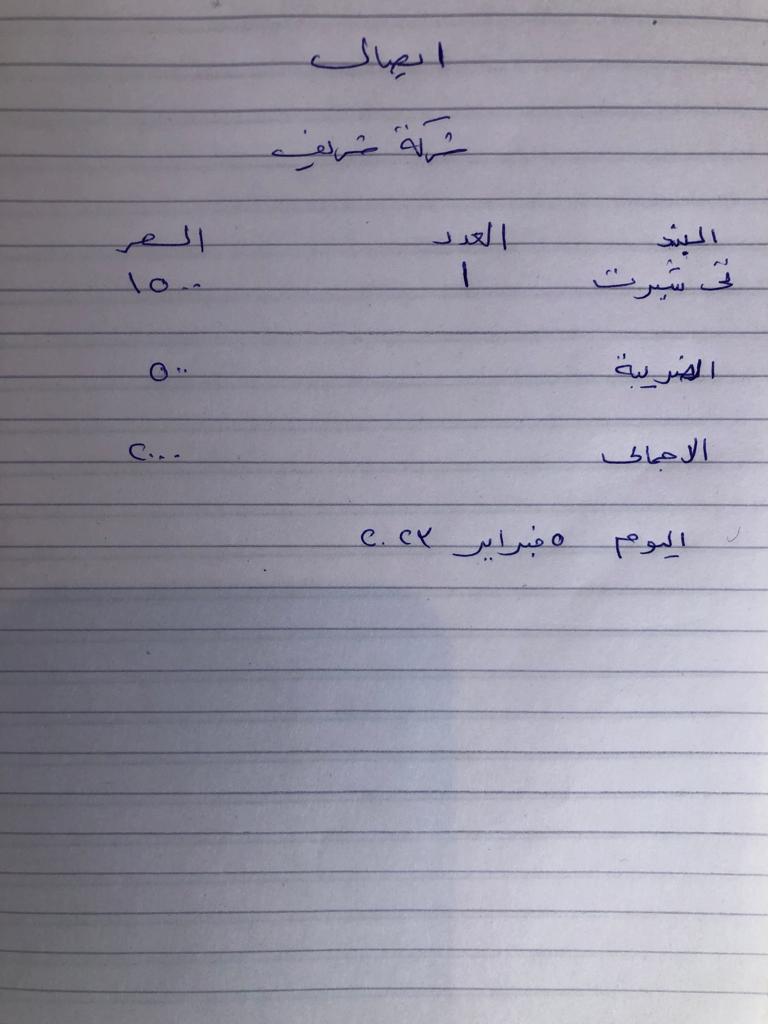 ايصال
شركة شريف
البند العدد السعر
تى شيرت ١ ١٥٠٠
الضريبة ٥٠٠
الاجمالى ٢٠٠٠
اليوم ٥ فبراير ٢٠٢٣